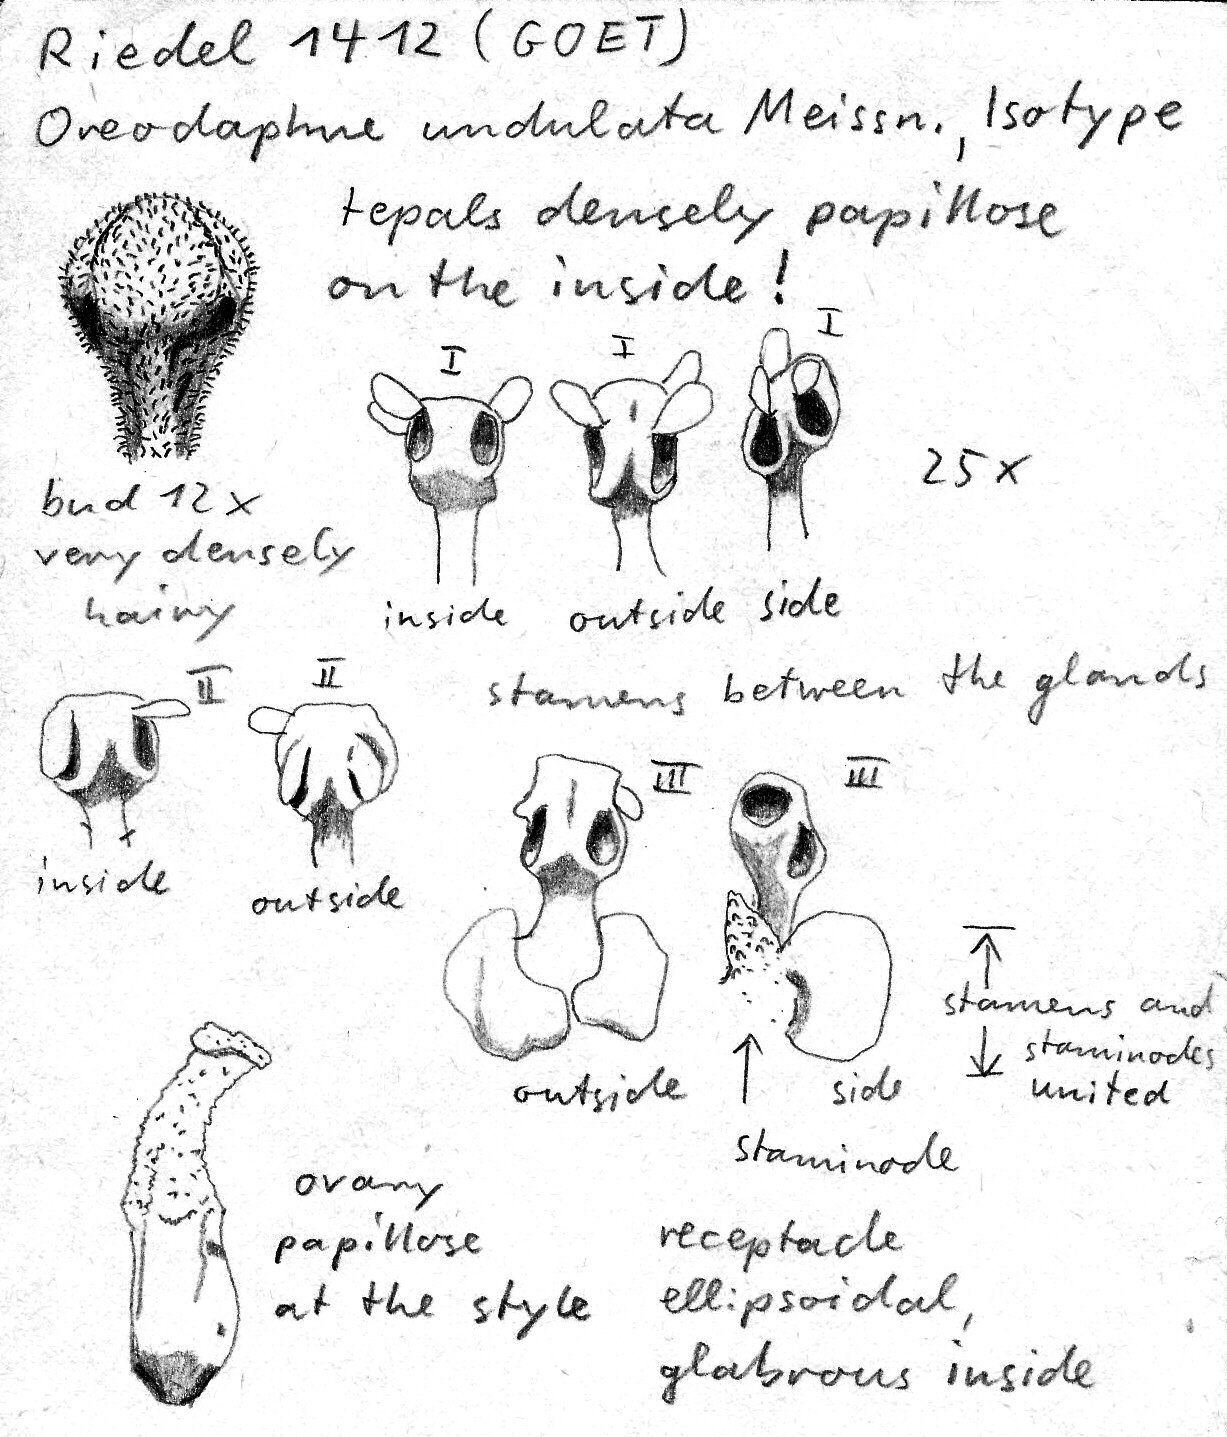 Riedel 1412 (GOET)
Oreodaphne undulata Meissn., Isotype
tepals densely papillose
on the inside!
I
I
I
25x
bud 12x
very densely
hairy
inside
outside
side
II
II
stamens between the glands
III
III
inside
outside
stamens and
staminodes
united
outside
side
staminode
ovary
papillose
at the style
receptacle
ellipsoidal,
glabrous inside